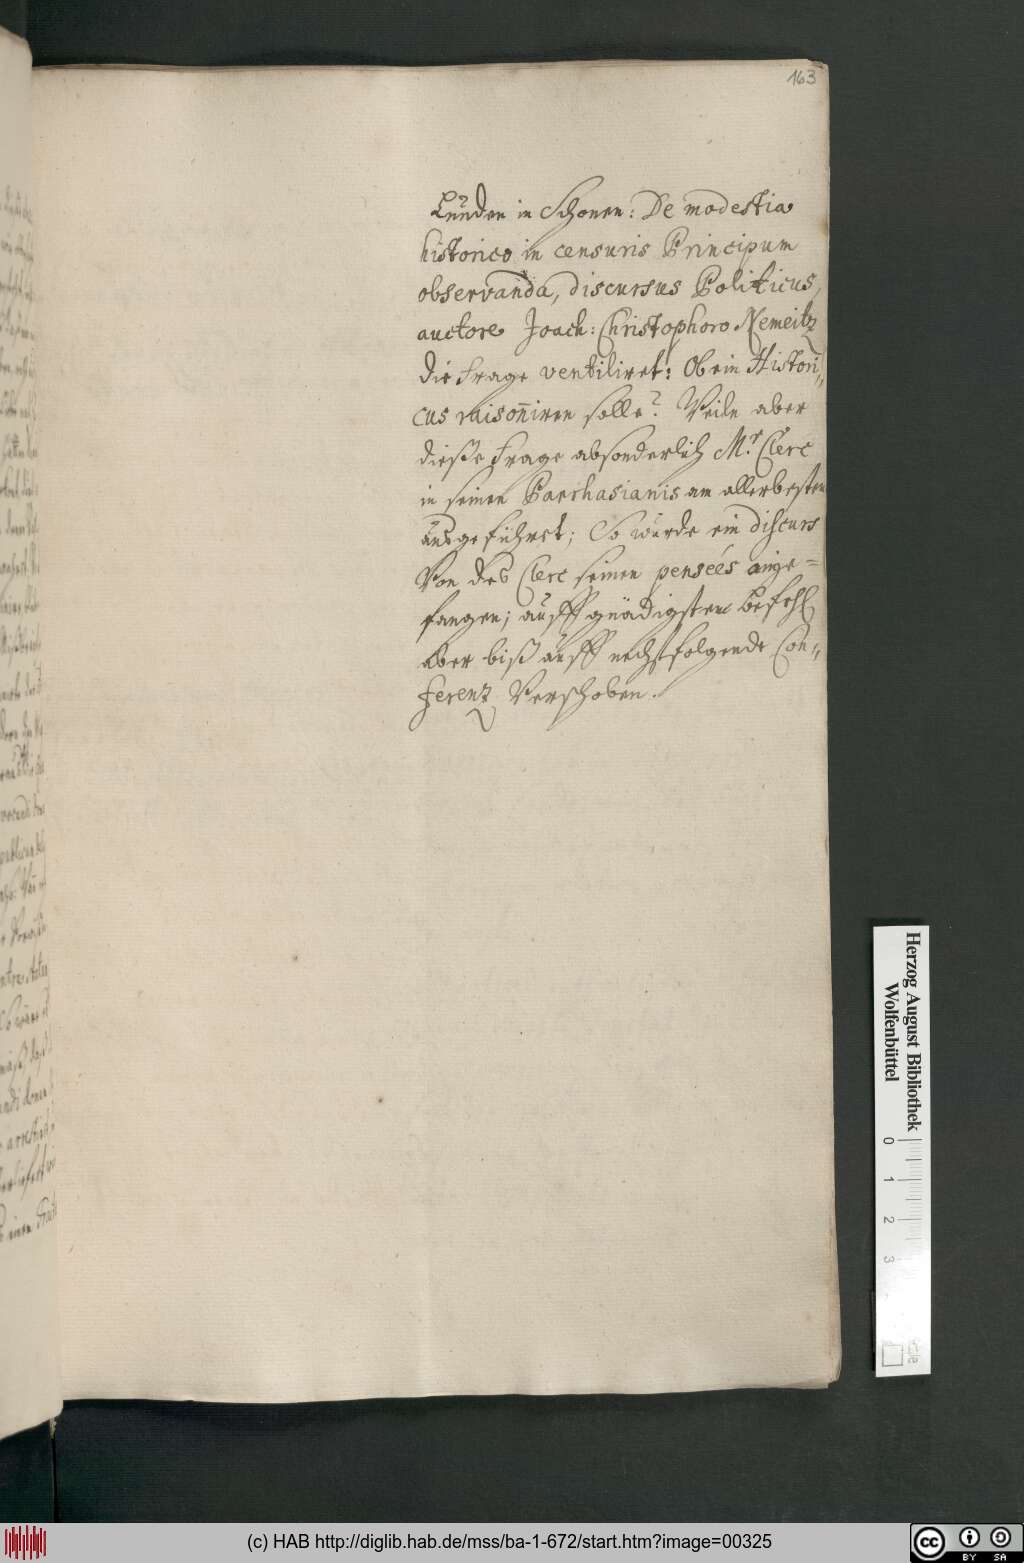 163
Lunden in Schonen: De modestia
historico in censuris Principum
observanda, discursus Politicus,
auctore Joach: Christophoro Nemeitz
die Frage ventiliret: Ob ein Histori„
cus raisoñiren solle? Weiln aber
dieße Frage absonderlich Mr. Clerc
in seinen Parrhasianis am allerbesten
ausgeführet; So wurde ein discurs
Von des Clerc seinen penseés ange=
fangen; auff gnädigsten Befehl
aber biß auff nechstfolgende Con„
ferenz verschoben.
Herzog August Bibliothek
Wolfenbüttel
0 1 2 3
(c) HAB http://diglib.hab.de/mss/ba-1-672/start.htm?image=00325
cc BY SA